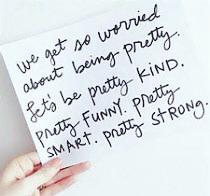 we get so worried
about being pretty.
Let's be pretty KIND.
pretty FUNNY. pretty
SMART. pretty STRONG.